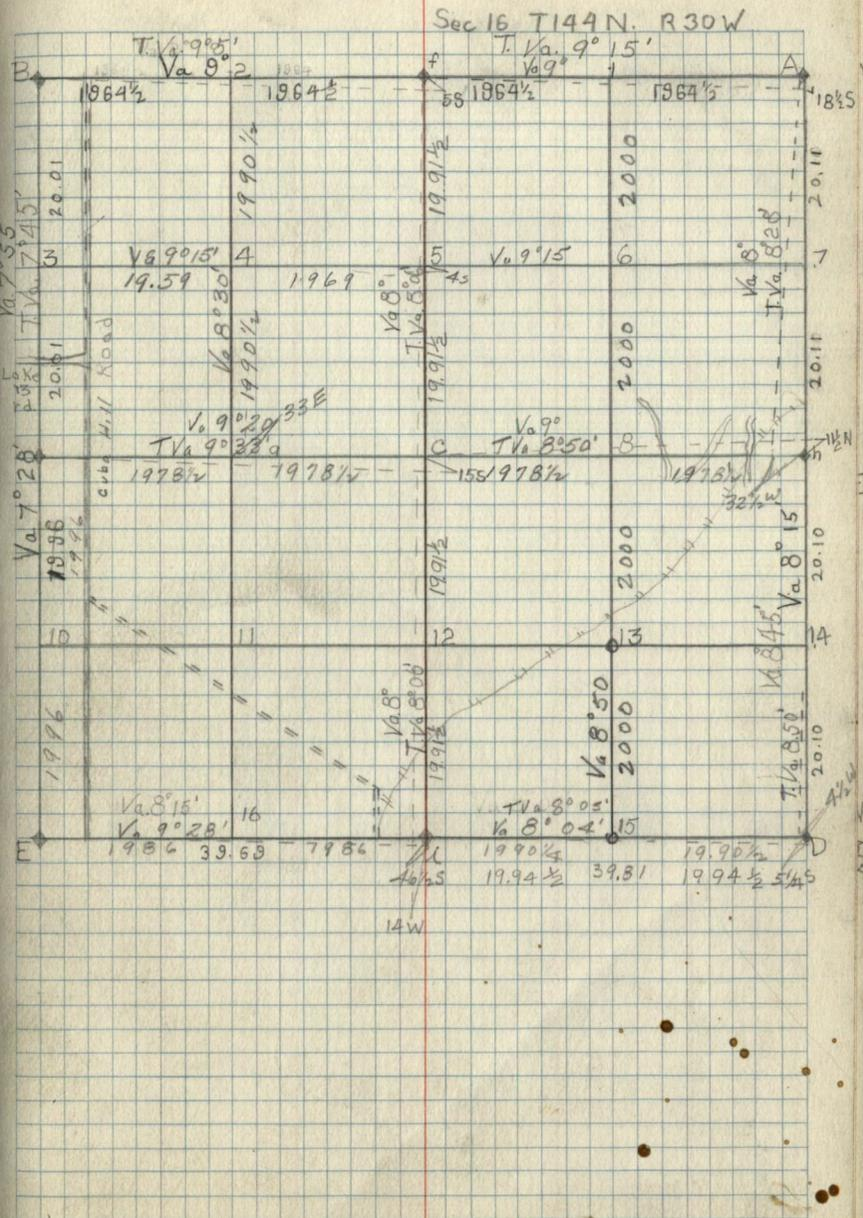 Sec 16 T144N. R30W
T. Va. 9°5' T. Va. 9° 15'
B Va 9° 2 f Va 9° 1 A
1964½ 1964½ 5S 1964½ 1964½ 18½S
20.01 1990½ 19.91½ 2000 20.11
T Va 7°45'
Va 8°
T. Va. 8°28'
3 Va 9°15' 4 5 Va 9°15 6 7
19.59 1969 4s
Va 8°30' Va 8° T. Va 8°
20.01 1990½ 19.91½ 2000 20.11
Cuba Hill Road
Va 9°20' 33E Va 9°
T Va 9°33' 9 C T Va 8°50' 8 h 11½N
1978½ 1978½ 15S 1978½ 1978½
32½W
Va 7°28'
19.96
1996 19.91½ 2000 Va 8°15' 20.10
10 11 12 13 14
Va 8°45'
1996 Va 8° T Va 8°00' 19.91½ Va 8°50 2000 T. Va 8.50' 20.10
4½W
Va. 8°15' 16 T Va 8°05'
E Va 9°28' Va 8°04' 15 D
1986 39.69 1986 1990¼ 19.90½
46½S 19.94½ 39.81 19.94½ 5¼S
14W